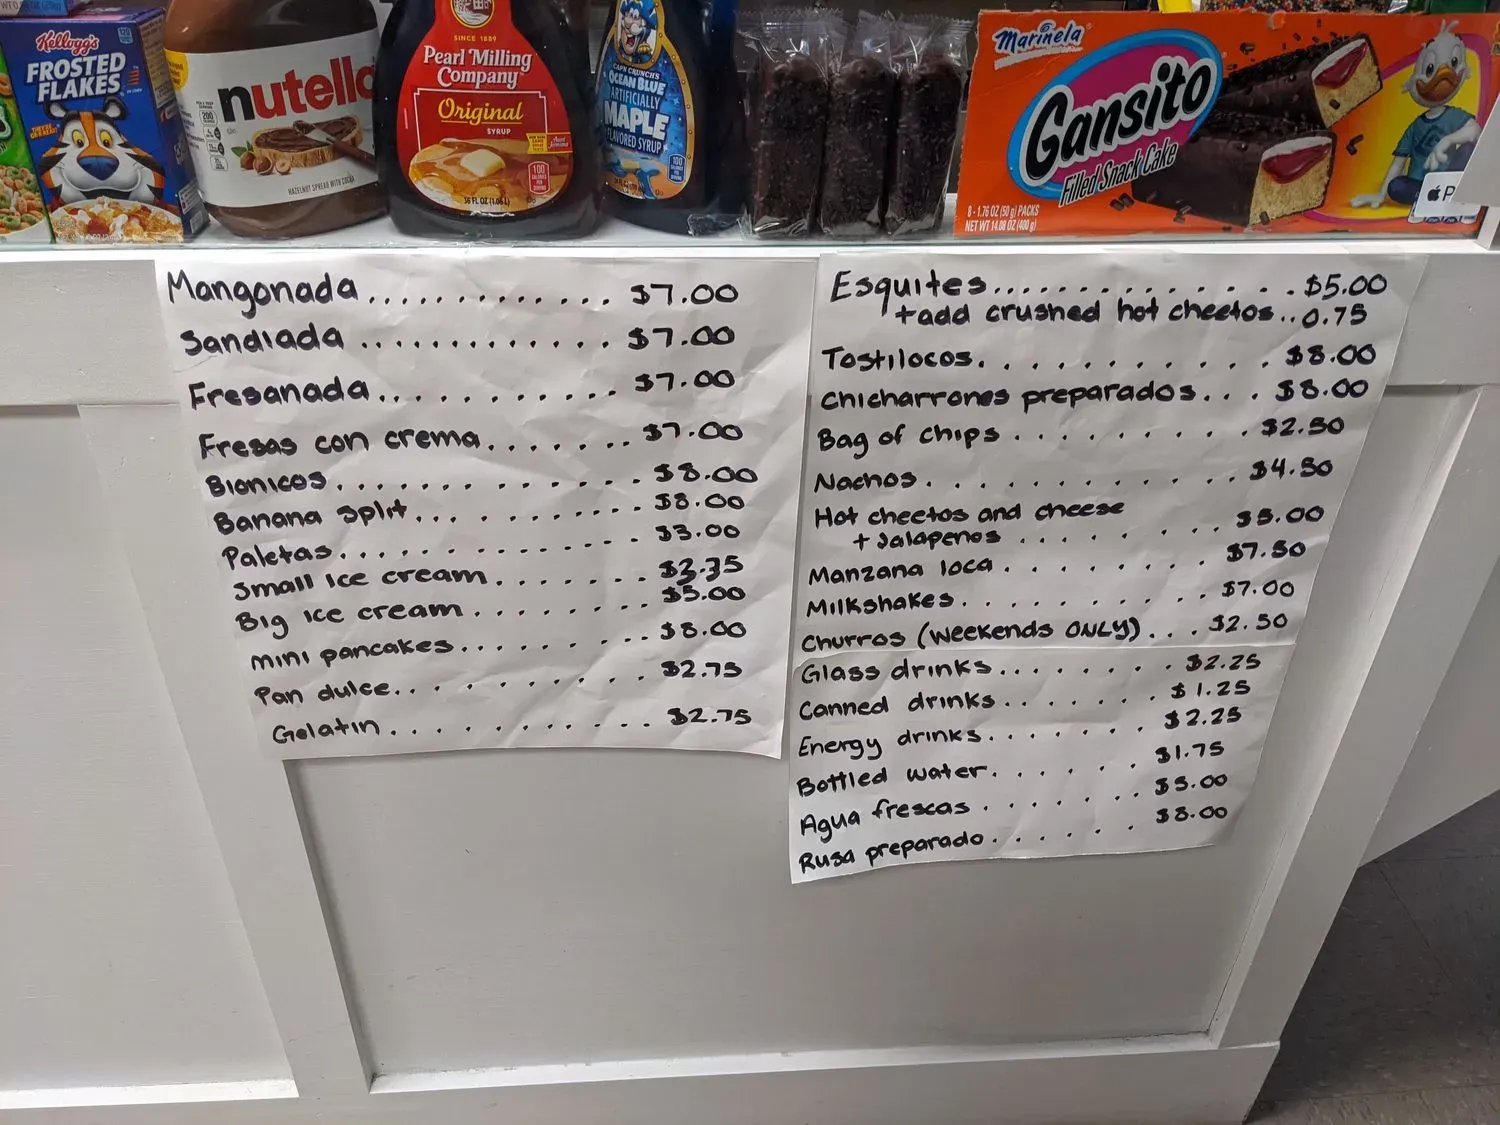 Kellogg's
FROSTED
FLAKES
THEY'RE
GR-R-REAT!
nutella
HAZELNUT SPREAD WITH COCOA
SINCE 1889
Pearl Milling
Company
Original
SYRUP
36 FL OZ (1.06 L)
CAP'N CRUNCH'S
OCEAN BLUE
ARTIFICIALLY
MAPLE
FLAVORED SYRUP
Marinela
Gansito
Filled Snack Cake
8 - 1.76 OZ (50 g) PACKS
NET WT 14.08 OZ (400 g)
Mangonada............. $7.00
Sandiada ............ $7.00
Fresanada........... $7.00
Fresas con crema....... $7.00
Bionicos............. $8.00
Banana Split............ $8.00
Paletas.............. $3.00
Small Ice cream........ $3.75
Big Ice cream......... $5.00
mini pancakes......... $8.00
Pan dulce........... $2.75
Gelatin........... $2.75
Esquites............... $5.00
+add crushed hot cheetos..0.75
Tostilocos............ $8.00
Chicharrones preparados... $8.00
Bag of chips......... $2.50
Nachos............ $4.50
Hot cheetos and cheese
+ Jalapenos ......... $5.00
Manzana loca......... $7.50
Milkshakes.......... $7.00
Churros (Weekends ONLY)... $2.50
Glass drinks........ $2.25
Canned drinks....... $1.25
Energy drinks....... $2.25
Bottled water...... $1.75
Agua frescas....... $5.00
Rusa preparado...... $8.00